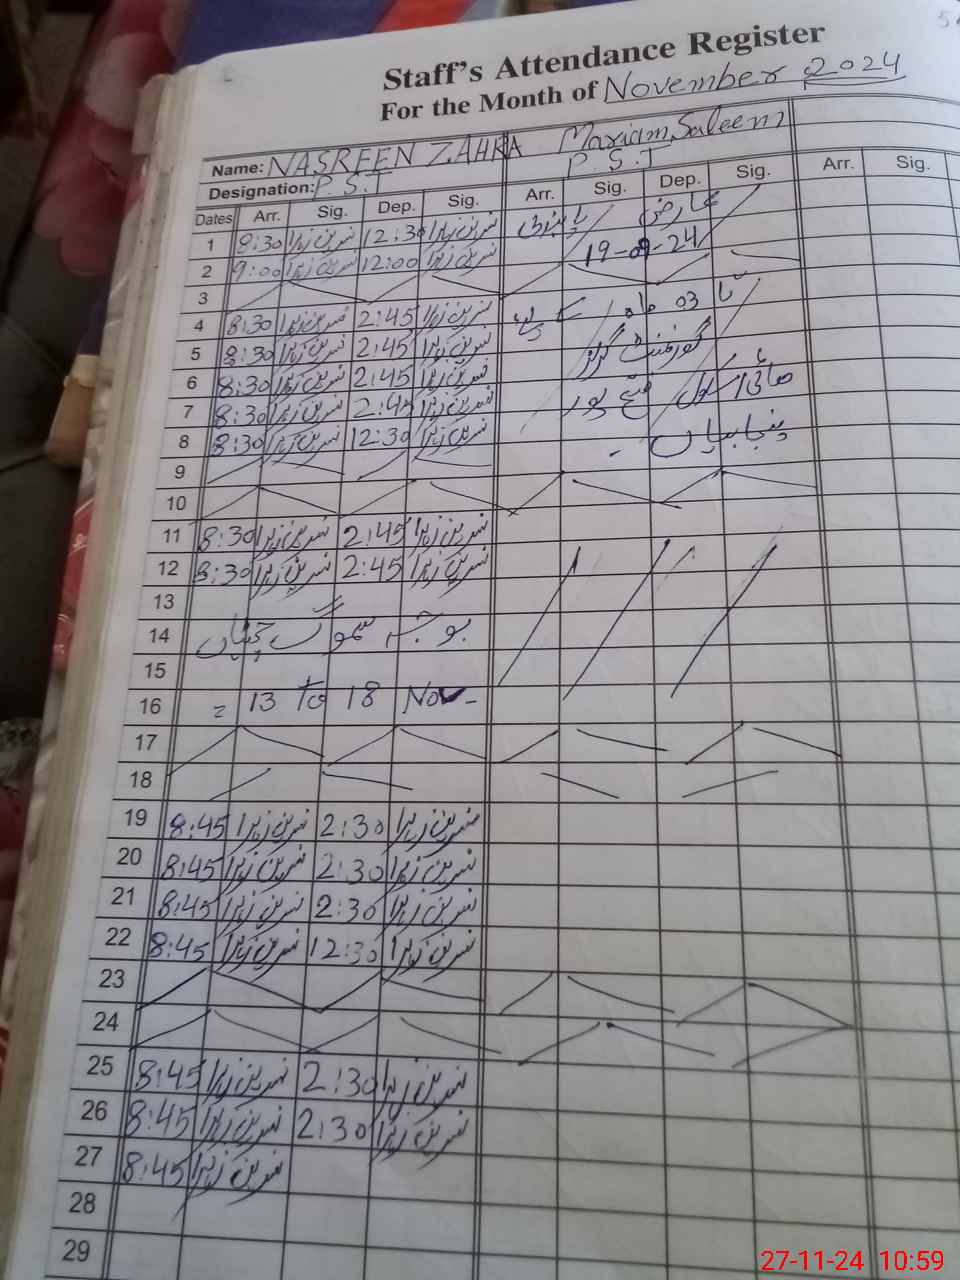 Staff's Attendance Register
For the Month of November 2024
Name: NASREEN ZAHRA Mariam Saleem
Designation: P.S.T P.S.T
Dates Arr. Sig. Dep. Sig. Arr. Sig. Dep. Sig. Arr. Sig.
1 8:30 نسرین زہرا 12:30 نسرین زہرا عارضی
2 9:00 نسرین زہرا 12:00 نسرین زہرا 19-09-24
3
4 8:30 نسرین زہرا 2:45 نسرین زہرا تا 03 ماہ کے لیے
5 8:30 نسرین زہرا 2:45 نسرین زہرا گورنمنٹ گرلز
6 8:30 نسرین زہرا 2:45 نسرین زہرا ہائی سکول فتح پور
7 8:30 نسرین زہرا 2:45 نسرین زہرا
8 8:30 نسرین زہرا 12:30 نسرین زہرا پنجابیاں -
9
10
11 8:30 نسرین زہرا 2:45 نسرین زہرا
12 8:30 نسرین زہرا 2:45 نسرین زہرا
13
14 بوجہ سموگ چھٹیاں
15
16 = 13 to 18 Nov -
17
18
19 8:45 نسرین زہرا 2:30 نسرین زہرا
20 8:45 نسرین زہرا 2:30 نسرین زہرا
21 8:45 نسرین زہرا 2:30 نسرین زہرا
22 8:45 نسرین زہرا 12:30 نسرین زہرا
23
24
25 8:45 نسرین زہرا 2:30 نسرین زہرا
26 8:45 نسرین زہرا 2:30 نسرین زہرا
27 8:45 نسرین زہرا
28
29
27-11-24 10:59